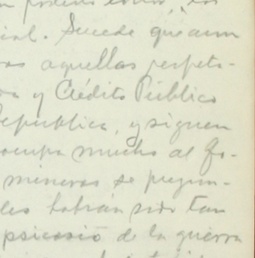 n podemos
ial. Sucede que aun
ras aquellas perpetu-
y Crédito Público
República, y siguen
ocupa mucho al Go-
mineros se pregun-
les habrán sido tan
psicosis de la guerra